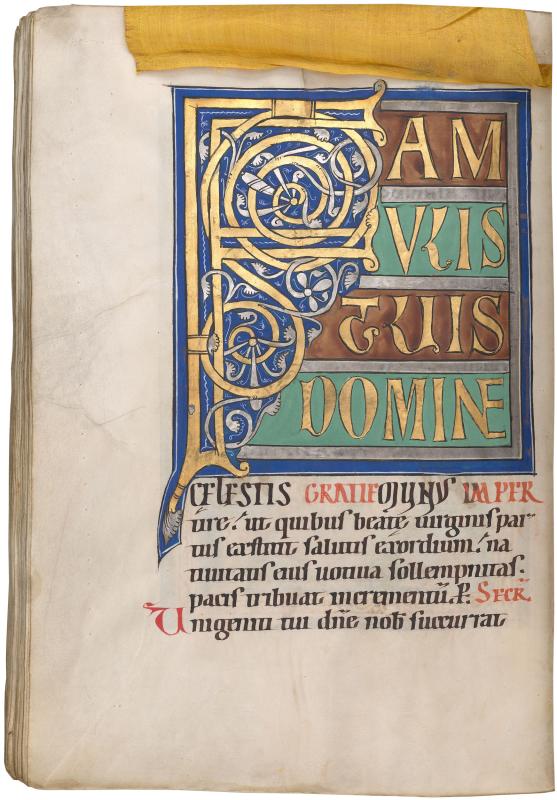 FAM
ULIS
TUIS
DOMINE
CELESTIS GRATIE MUNUS IMPER
tire. ut quibus beate uirginis par-
tus exstitit salutis exordium. na
tiuitatis eius uotiua sollempnitas:
pacis tribuat incrementū. P. SECR.
Unigeniti tui dn̄e nob̄ succurrat